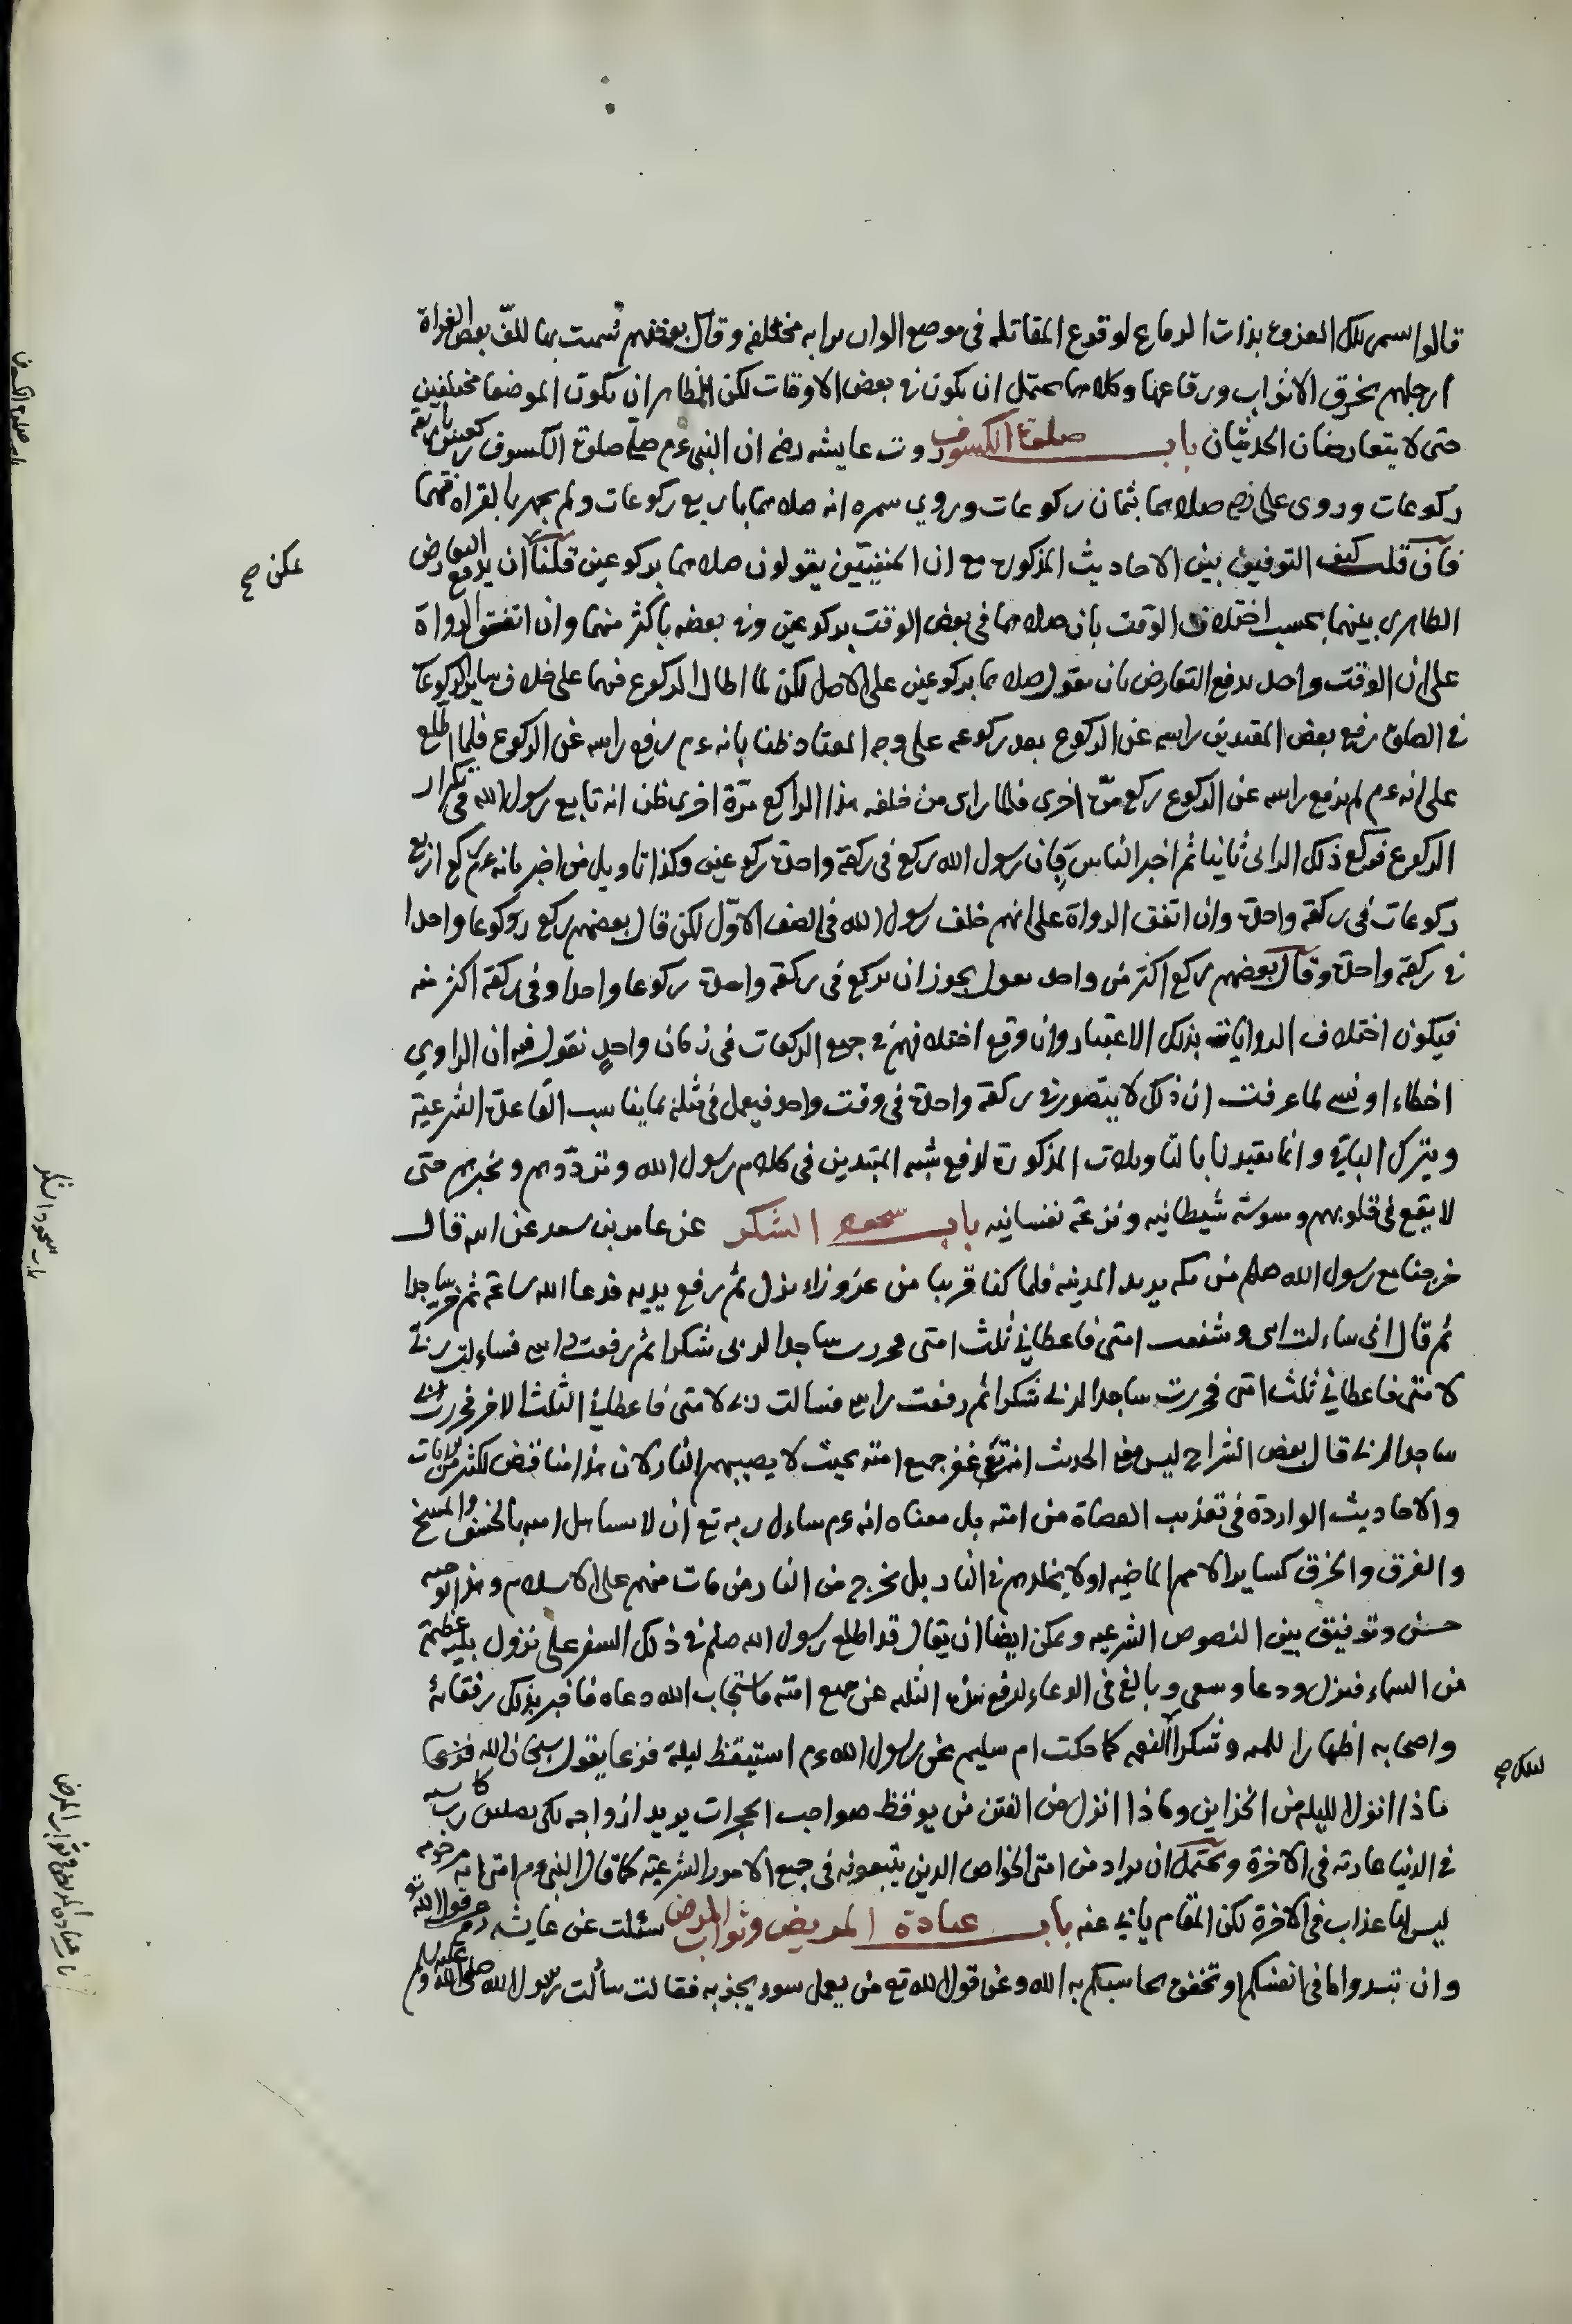 قالوا سمى تلك الغزوة بذات الرقاع لوقوع المقاتلة فى موضع الوان ترابه مختلفه وقال بعضهم سميت بها للفّ بعض الغزاة
ارجلهم بخرق الاثواب ورقاعها وكلاهما يحتمل ان يكون فى بعض الاوقات لكن الظاهر ان يكون الموضعا مختلفين
حتى لا يتعارضان الحديثان باب صلوة الكسوف روت عايشه رضى ان النبى ءم صلّى صلوة الكسوف ركعتين باربعة
ركوعات وروى على رضى صلاهما بثمان ركوعات وروى سمره انه صلاهما باربع ركوعات ولم يجهر بالقراة فيهما
فان قلت كيف التوفيق بين الاحاديث المذكورة مع ان الحنفيين يقولون صلاهما بركوعين قلنا ان يدفع التعارض
يمكن صح
الظاهرى بينهما بحسب اختلاف الوقت بان صلاهما فى بعض الوقت بركوعين وفى بعضه باكثر منهما وان اتفق الرواة
على ان الوقت واحد يدفع التعارض بان نقول صلاهما بركوعين على الاصل لكن لما اطال الركوع فيهما على خلاف ساير الركوعات
فى الصلوة رفع بعض المقتدين راسه عن الركوع بعد ركوعه على وجه المعتاد ظنا بانه ءم رفع راسه عن الركوع فلما اطّلع
على انه ءم لم يرفع راسه عن الركوع ركع مرّة اخرى فلما راى من خلفه هذا الراكع مرّة اخرى ظن انه تابع رسول الله فى تكرار
الركوع فركع ذلك الرائى ثانيا ثم اخبر الناس بان رسول الله ركع فى ركعة واحدة ركوعين وكذا تاويل من اخبر بانه ءم ركع اربع
ركوعات فى ركعة واحدة وان اتفق الرواة على انهم خلف رسول الله فى الصف الاوّل لكن قال بعضهم ركع ركوعا واحدا
فى ركعة واحدة وقال بعضهم ركع اكثر من واحد نقول يجوز ان يركع فى ركعة واحدة ركوعا واحدا وفى ركعة اكثر منه
فيكون اختلاف الروايات بذلك الاعتبار وان وقع اختلافهم فى جميع الركعات فى زمان واحدٍ نقول فيه ان الراوي
اخطاء او نسى لما عرفت ان ذلك لا يتصور فى ركعة واحدة فى وقت واحد فيعمل فى مثله بما يناسب القاعدة الشرعية
ويترك الباقى وانما تقيدنا بالتاويلات المذكورة لدفع شبه المبتدين فى كلام رسول الله وتردّدهم وتحيرهم حتى
لا يقع فى قلوبهم وسوسة شيطانيه ونزعة نفسانيه باب سجود الشكر عن عامر بن سعد عن ابيه قال
خرجنا مع رسول الله صلم من مكه يريد المدينه فلما كنا قريبا من عزوزاء نزل ثم رفع يديه فدعا الله ساعة ثم خر ساجدا
ثم قال انى ساءلت ربى وشفعت امتى فاعطانى ثلث امتى فخررت ساجدا لربى شكرا ثم رفعت راسى فساءلت ربى
لامتى فاعطانى ثلث امتى فخررت ساجدا لربى شكرا ثم رفعت راسى فسالت ربى لامتى فاعطانى الثلث الاخر فخررت
ساجدا لربى قال بعض الشراح ليس معنى الحديث انه تع غفر جميع امته بحيث لا يصيبهم النار لان هذا مناقض لكثير من الايات
والاحاديث الواردة فى تعذيب العصاة من امته بل معناه انه ءم ساءل ربه تع ان لا يستاصل امته بالخسف والمسخ
والغرق والحرق كساير الامم الماضيه او لا يخلدهم فى النار بل يخرج من النار من مات منهم على الاسلام وهذا توجيه
حسن وتوفيق بين النصوص الشرعيه ويمكن ايضا ان يقال قد اطلع رسول الله صلم فى ذلك السفر على نزول بليّة عظيمة
من السماء فنزل ودعا وسعى وبالغ فى الدعاء لدفع تلك البليه عن جميع امته فاستجاب الله دعاه فاخبر بذلك رفقائهُ
واصحابه اظهارا للمنة وشكرا النعمه كما حكت ام سليم عن رسول الله ءم استيقظ ليلة فزعا يقول سبحان الله فزعا
لتلك صح
ماذا انزل الليله من الخزاين وماذا انزل من الفتن من يوقظ صواحب الحجرات يريد ازواجه لكى يصلين رب كاسيه
فى الدنيا عارته فى الاخرة ويحتمل ان يراد من امتى الخواص الذين يتبعونه فى جميع الامور الشرعيّة كما قال النبى ءم امتى امة مرحومه
ليس لها عذاب فى الاخرة لكن المقام يابى عنه باب عيادة المريض وثواب المرض سئلت عن عايشه رضى عن قول الله تع
وان تبدوا ما فى انفسكم او تخفوه يحاسبكم به الله وعن قول الله تع من يعمل سوء يجز به فقالت سألت رسول الله صلى الله عليه وسلم
باب صلوة الكسوف
باب سجود الشكر
باب عيادة المريض وثواب المرض